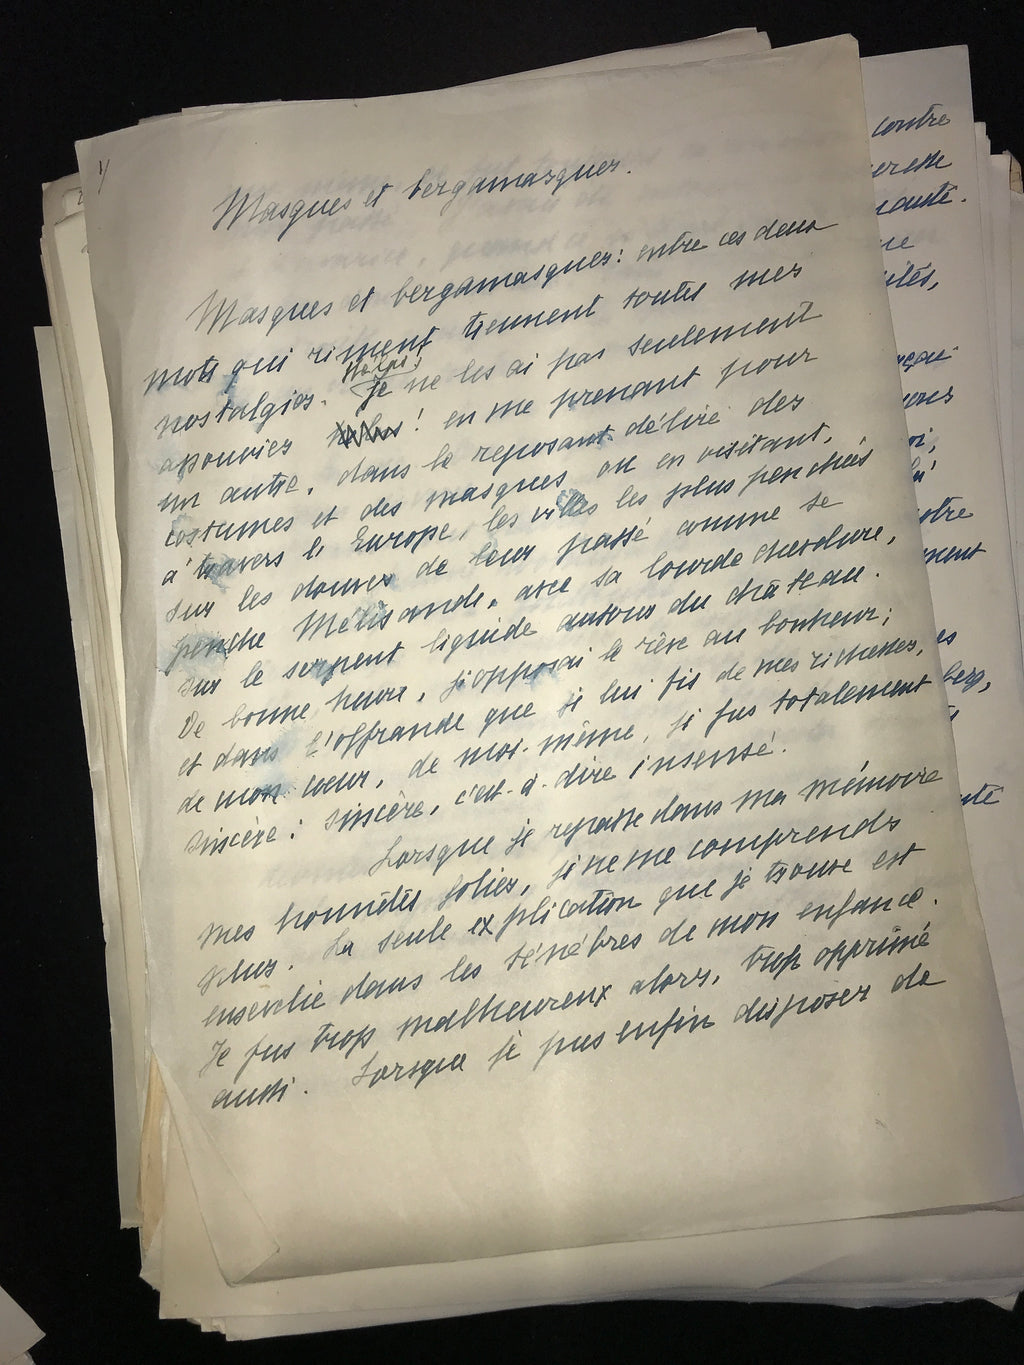 1/
Masques et bergamasques.
Masques et bergamasques: entre ces deux
mots qui riment tiennent toutes mes
nostalgies. Hélas, je ne les ai pas seulement
apouvries ! en me prenant pour
un autre, dans le reposant délire des
costumes et des masques ou en visitant,
à travers l'Europe, les villes les plus penchées
sur les douves de leur passé comme se
penche Mélisande, avec sa lourde chevelure,
sur le serpent liquide autour du château.
De bonne heure, j'opposai le rêve au bonheur;
et dans l'offrande que je lui fis de mes richesses,
de mon cœur, de moi-même, je fus totalement
sincère: sincère, c'est-à-dire insensé.
Lorsque je repasse dans ma mémoire
mes honnêtes folies, je ne me comprends
plus. La seule explication que je trouve est
ensevelie dans les ténèbres de mon enfance.
Je fus trop malheureux alors, trop opprimé
aussi. Lorsque je pus enfin disposer de
contre
resse
ités,
vous
otre
ment
es